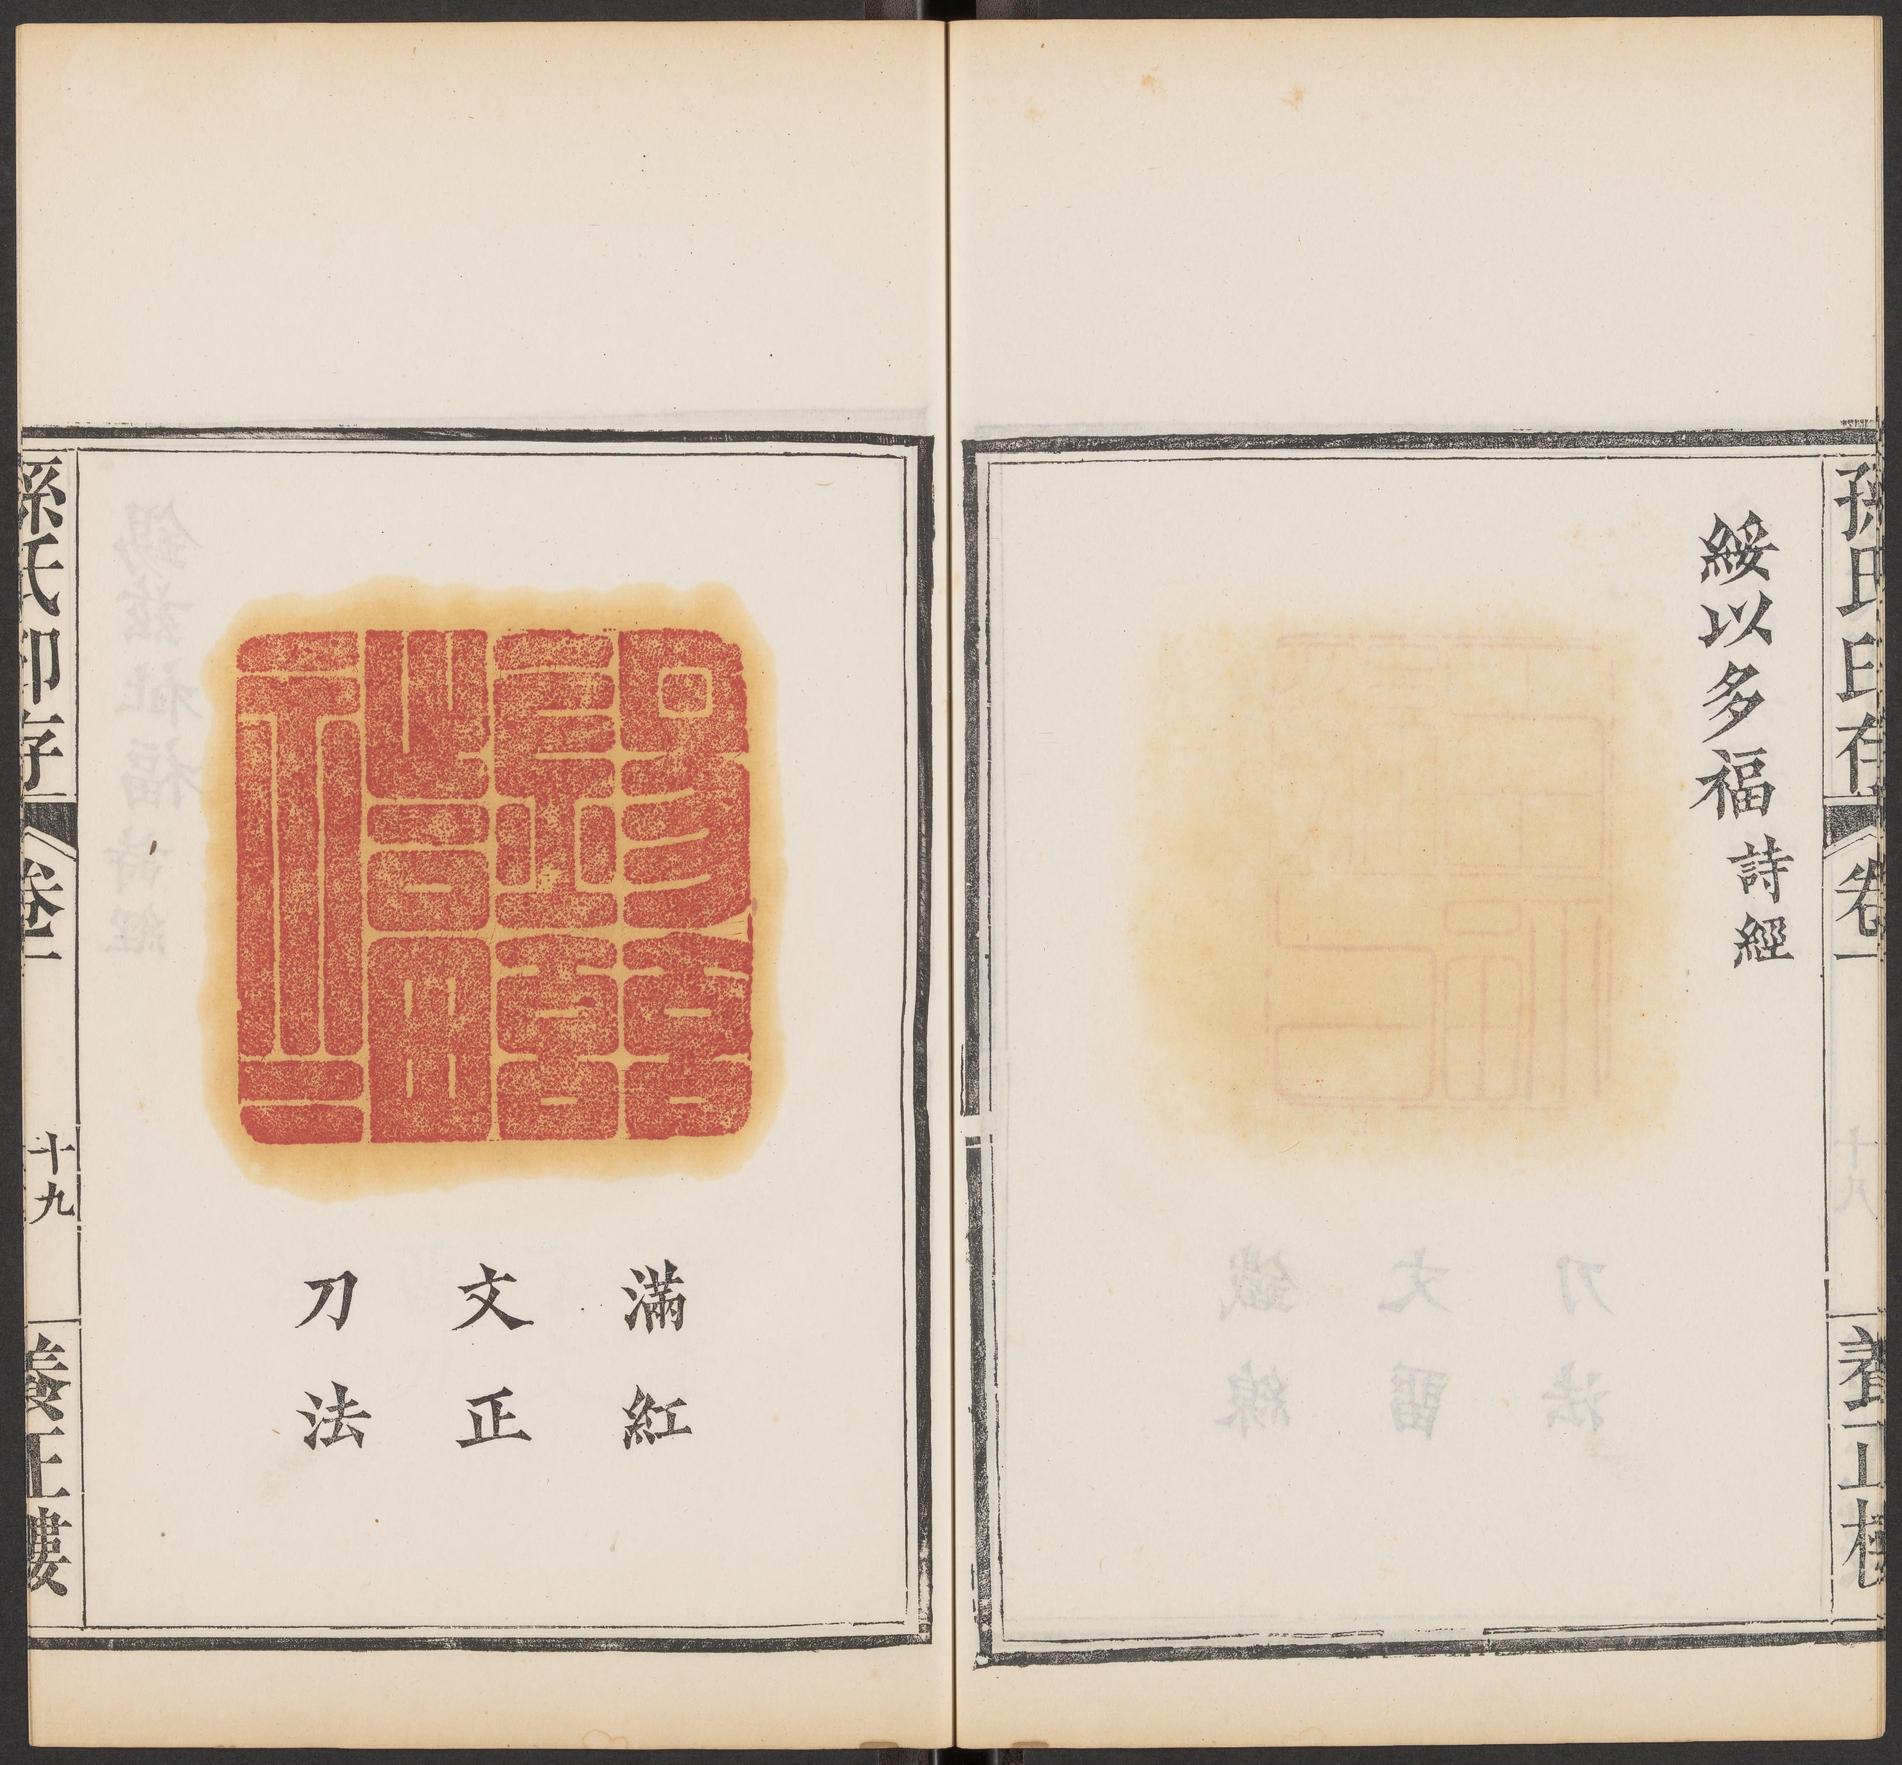 孫氏印存
卷一
養正樓
綏以多福 詩經
滿紅
文正
刀法
孫氏印存
卷一
十九
養正樓